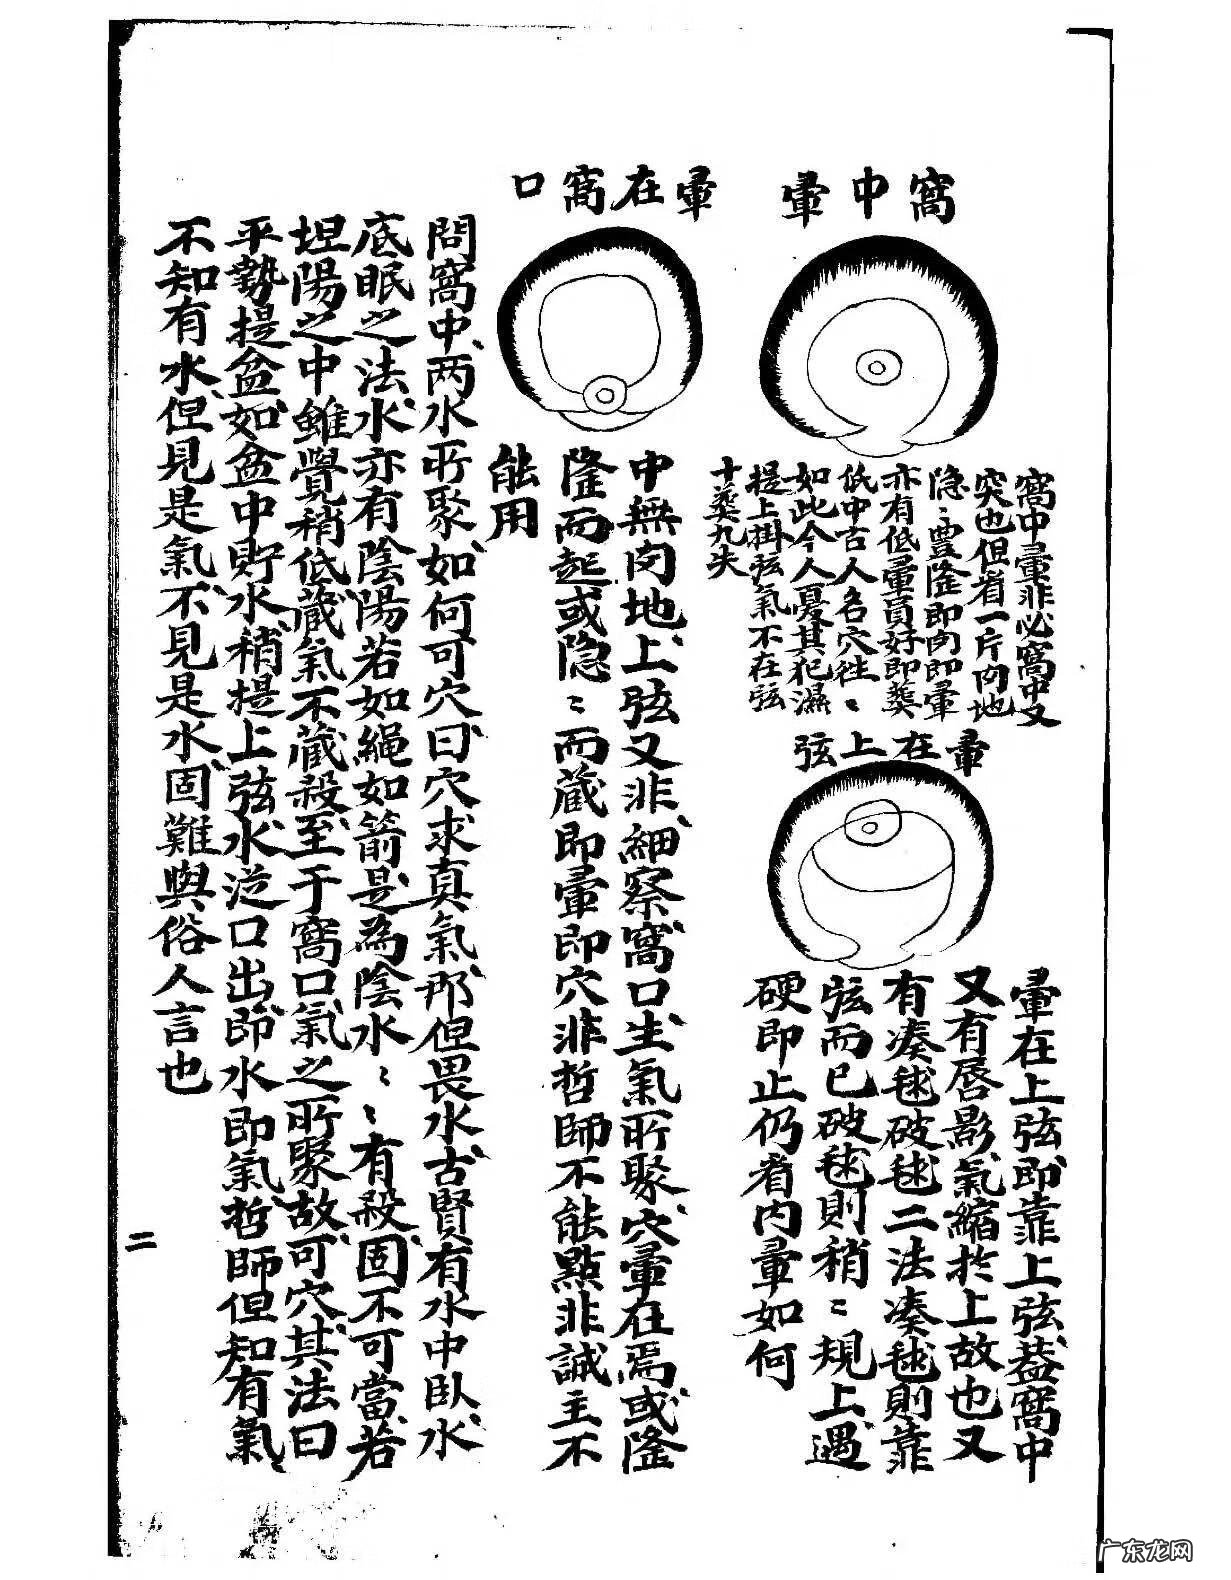 窩中暈
窩中暈非必窩中又
突也但看一片肉地
隐〻豊隆即肉即暈
亦有低暈員好即葬
低中古人名穴徃〻
如此今人憂其犯濕
提上掛弦氣不在弦
十葬九失
暈在上弦
暈在上弦即靠上弦葢窩中
又有唇影氣縮於上故也又
有凑毬破毬二法凑毬則靠
弦而已破毬則稍〻規上遇
硬即止仍看内暈如何
暈在窩口
中無肉地上弦又非細察窩口生氣所聚穴暈在焉或隆
隆而起或隐〻而蔵即暈即穴非哲師不能點非誠主不
能用
問窩中两水所聚如何可穴曰穴求真氣那但畏水古賢有水中臥水
底眠之法水亦有陰陽若如繩如箭是為陰水〻〻有殺固不可當若
坦陽之中雖覺稍低蔵氣不蔵殺至于窩口氣之所聚故可穴其法曰
平勢提盆如盆中貯水稍提上弦水泛口出即水即氣哲師但知有氣
不知有水但見是氣不見是水固難與俗人言也
二
广东龙网